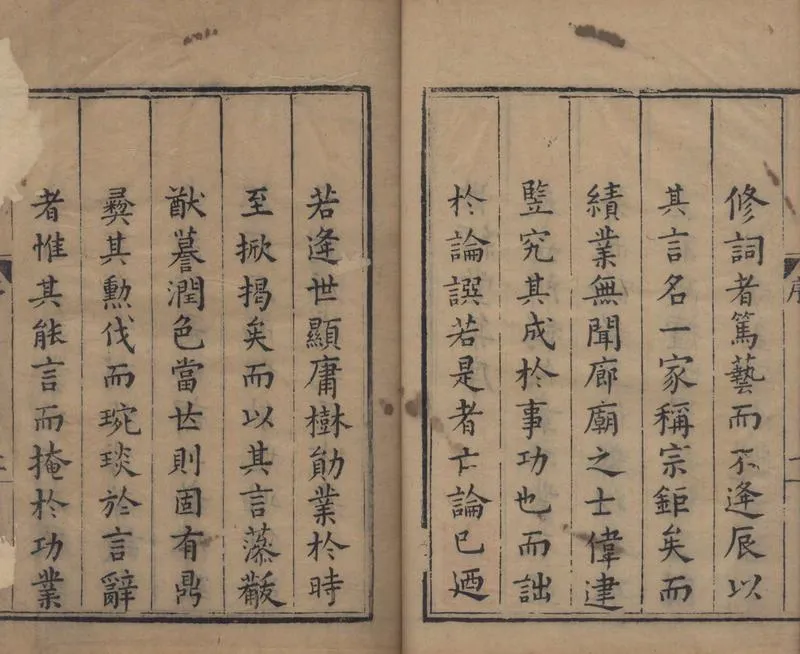 修詞者篤藝而不逢辰以
其言名一家稱宗鉅矣而
績業無聞廊廟之士偉建
豎究其成於事功也而詘
於論譔若是者亡論已迺
若逢世顯庸樹勛業於時
至掀揭矣而以其言藻黻
猷謩潤色當世則固有鼎
彞其勳伐而琬琰於言辭
者惟其能言而掩於功業
序